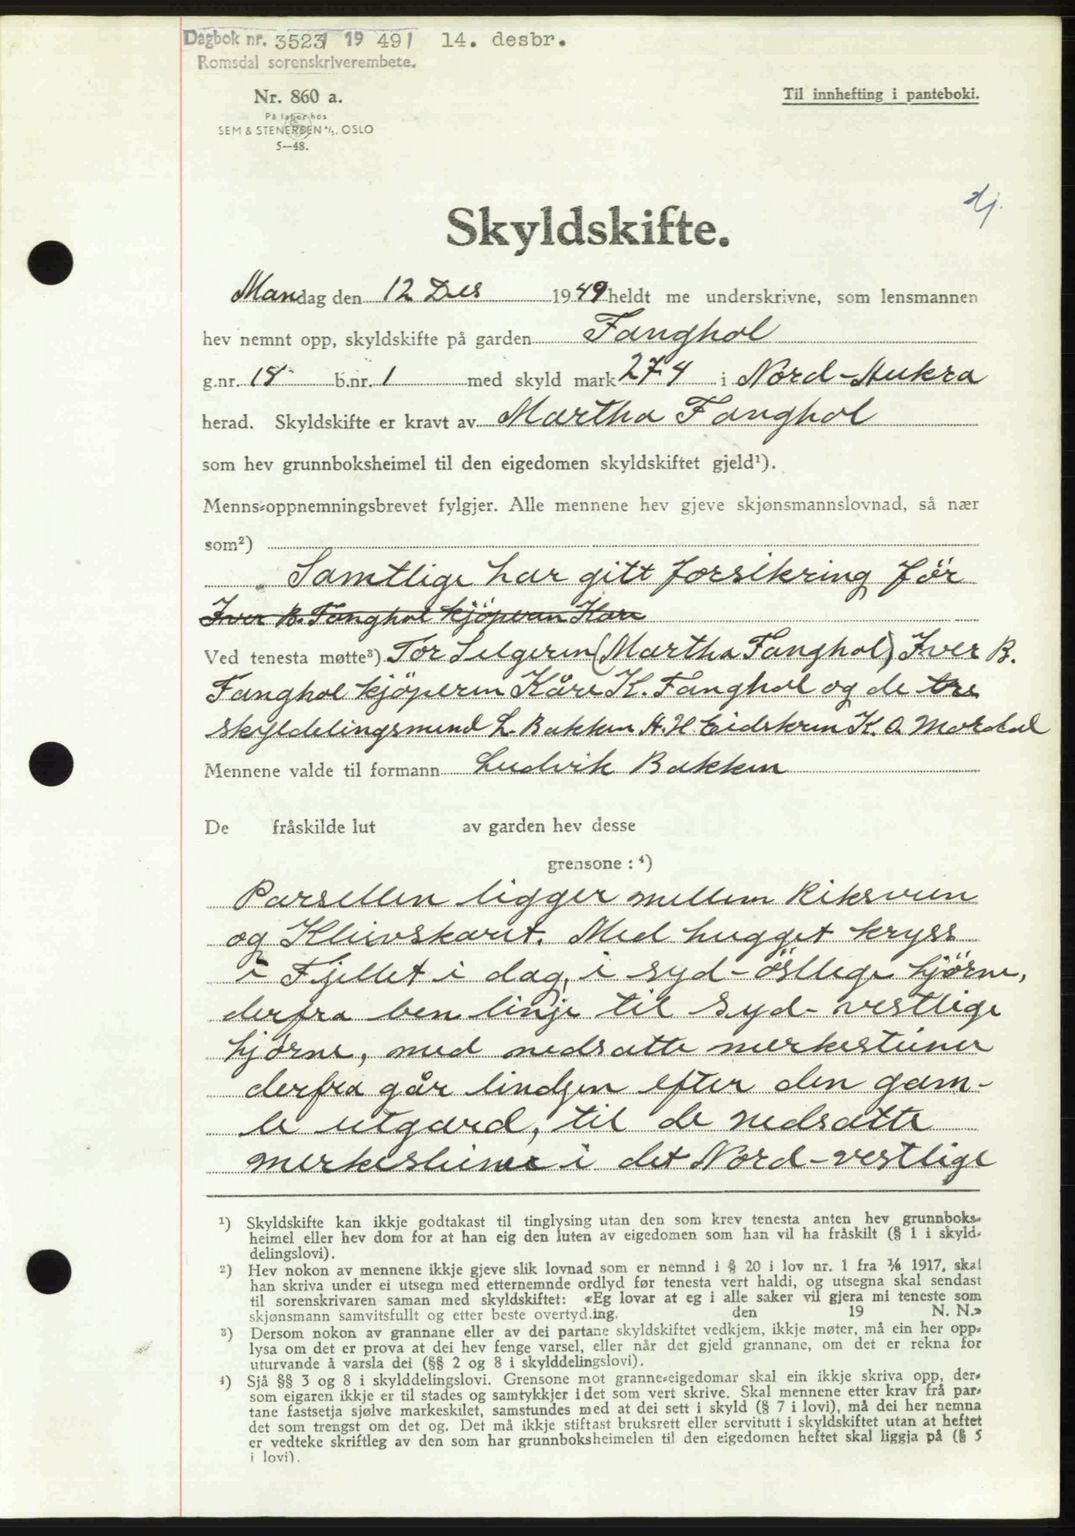 Dagbok nr. 3523/ 19 49/ 14. desbr.
Romsdal sorenskriverembete.
Nr. 860 a.
På lager hos
SEM & STENERSEN A/S. OSLO
5—48.
Til innhefting i panteboki.
Skyldskifte.
Mandag den 12 Des 1949 heldt me underskrivne, som lensmannen
hev nemnt opp, skyldskifte på garden Fanghol
g.nr. 18 b.nr. 1 med skyld mark 274 i Nord-Aukra
herad. Skyldskifte er kravt av Martha Fanghol
som hev grunnboksheimel til den eigedomen skyldskiftet gjeld¹).
Menns-oppnemningsbrevet fylgjer. Alle mennene hev gjeve skjønsmannslovnad, så nær
som²)
Samtlige har gitt forsikring för
Iver B. Fanghol kjöperen Kåre
Ved tenesta møtte³) For Selgeren (Martha Fanghol) Iver B.
Fanghol kjöperen Kåre K. Fanghol og de tre
skylddelingsmend L. Bakken A. H. Eidskren K. O.
Mennene valde til formann Ludvik Bakken
De fråskilde lut av garden hev desse
grensone : ⁴)
Parsellen ligger mellem Riksveien
og Kleivskaret. Med hugget kryss
i Fjellet i dag, i syd-östlege hjörne,
derfra ben linje til syd-vestlige
hjörne, med nedsatte merkesteiner
derfra går lindjen efter den gam-
le utgard, til de nedsatte
merkesteiner i det Nord-vestlige
¹) Skyldskifte kan ikkje godtakast til tinglysing utan den som krev tenesta anten hev grunnboks-
heimel eller hev dom for at han eig den luten av eigedomen som han vil ha fråskilt (§ 1 i skyld-
delingslovi).
²) Hev nokon av mennene ikkje gjeve slik lovnad som er nemnd i § 20 i lov nr. 1 fra ¹/₆ 1917, skal
han skriva under ei utsegn med etternemnde ordlyd før tenesta vert haldi, og utsegna skal sendast
til sorenskrivaren saman med skyldskiftet: «Eg lovar at eg i alle saker vil gjera mi teneste som
skjønsmann samvitsfullt og etter beste overtyding. den 19 N. N.»
³) Dersom nokon av grannane eller av dei partane skyldskiftet vedkjem, ikkje møter, må ein her opp-
lysa om det er prova at dei hev fenge varsel, eller når det gjeld grannane, om det er rekna for
uturvande å varsla dei (§§ 2 og 8 i skylddelingslovi).
⁴) Sjå §§ 3 og 8 i skylddelingslovi. Grensone mot granne-eigedomar skal ein ikkje skriva opp, der-
som eigaren ikkje er til stades og samtykkjer i det som vert skrive. Skal mennene etter krav frå par-
tane fastsetja sjølve markeskilet, samstundes med at dei sett i skyld (§ 7 i lovi), må dei her nemna
det som trengst om det og. Det må ikkje stiftast bruksrett eller servitutt i skyldskiftet utan at heftet
er vedteke skriftleg av den som har grunnboksheimelen til den eigedomen heftet skal liggja på (§ 5
i lovi).